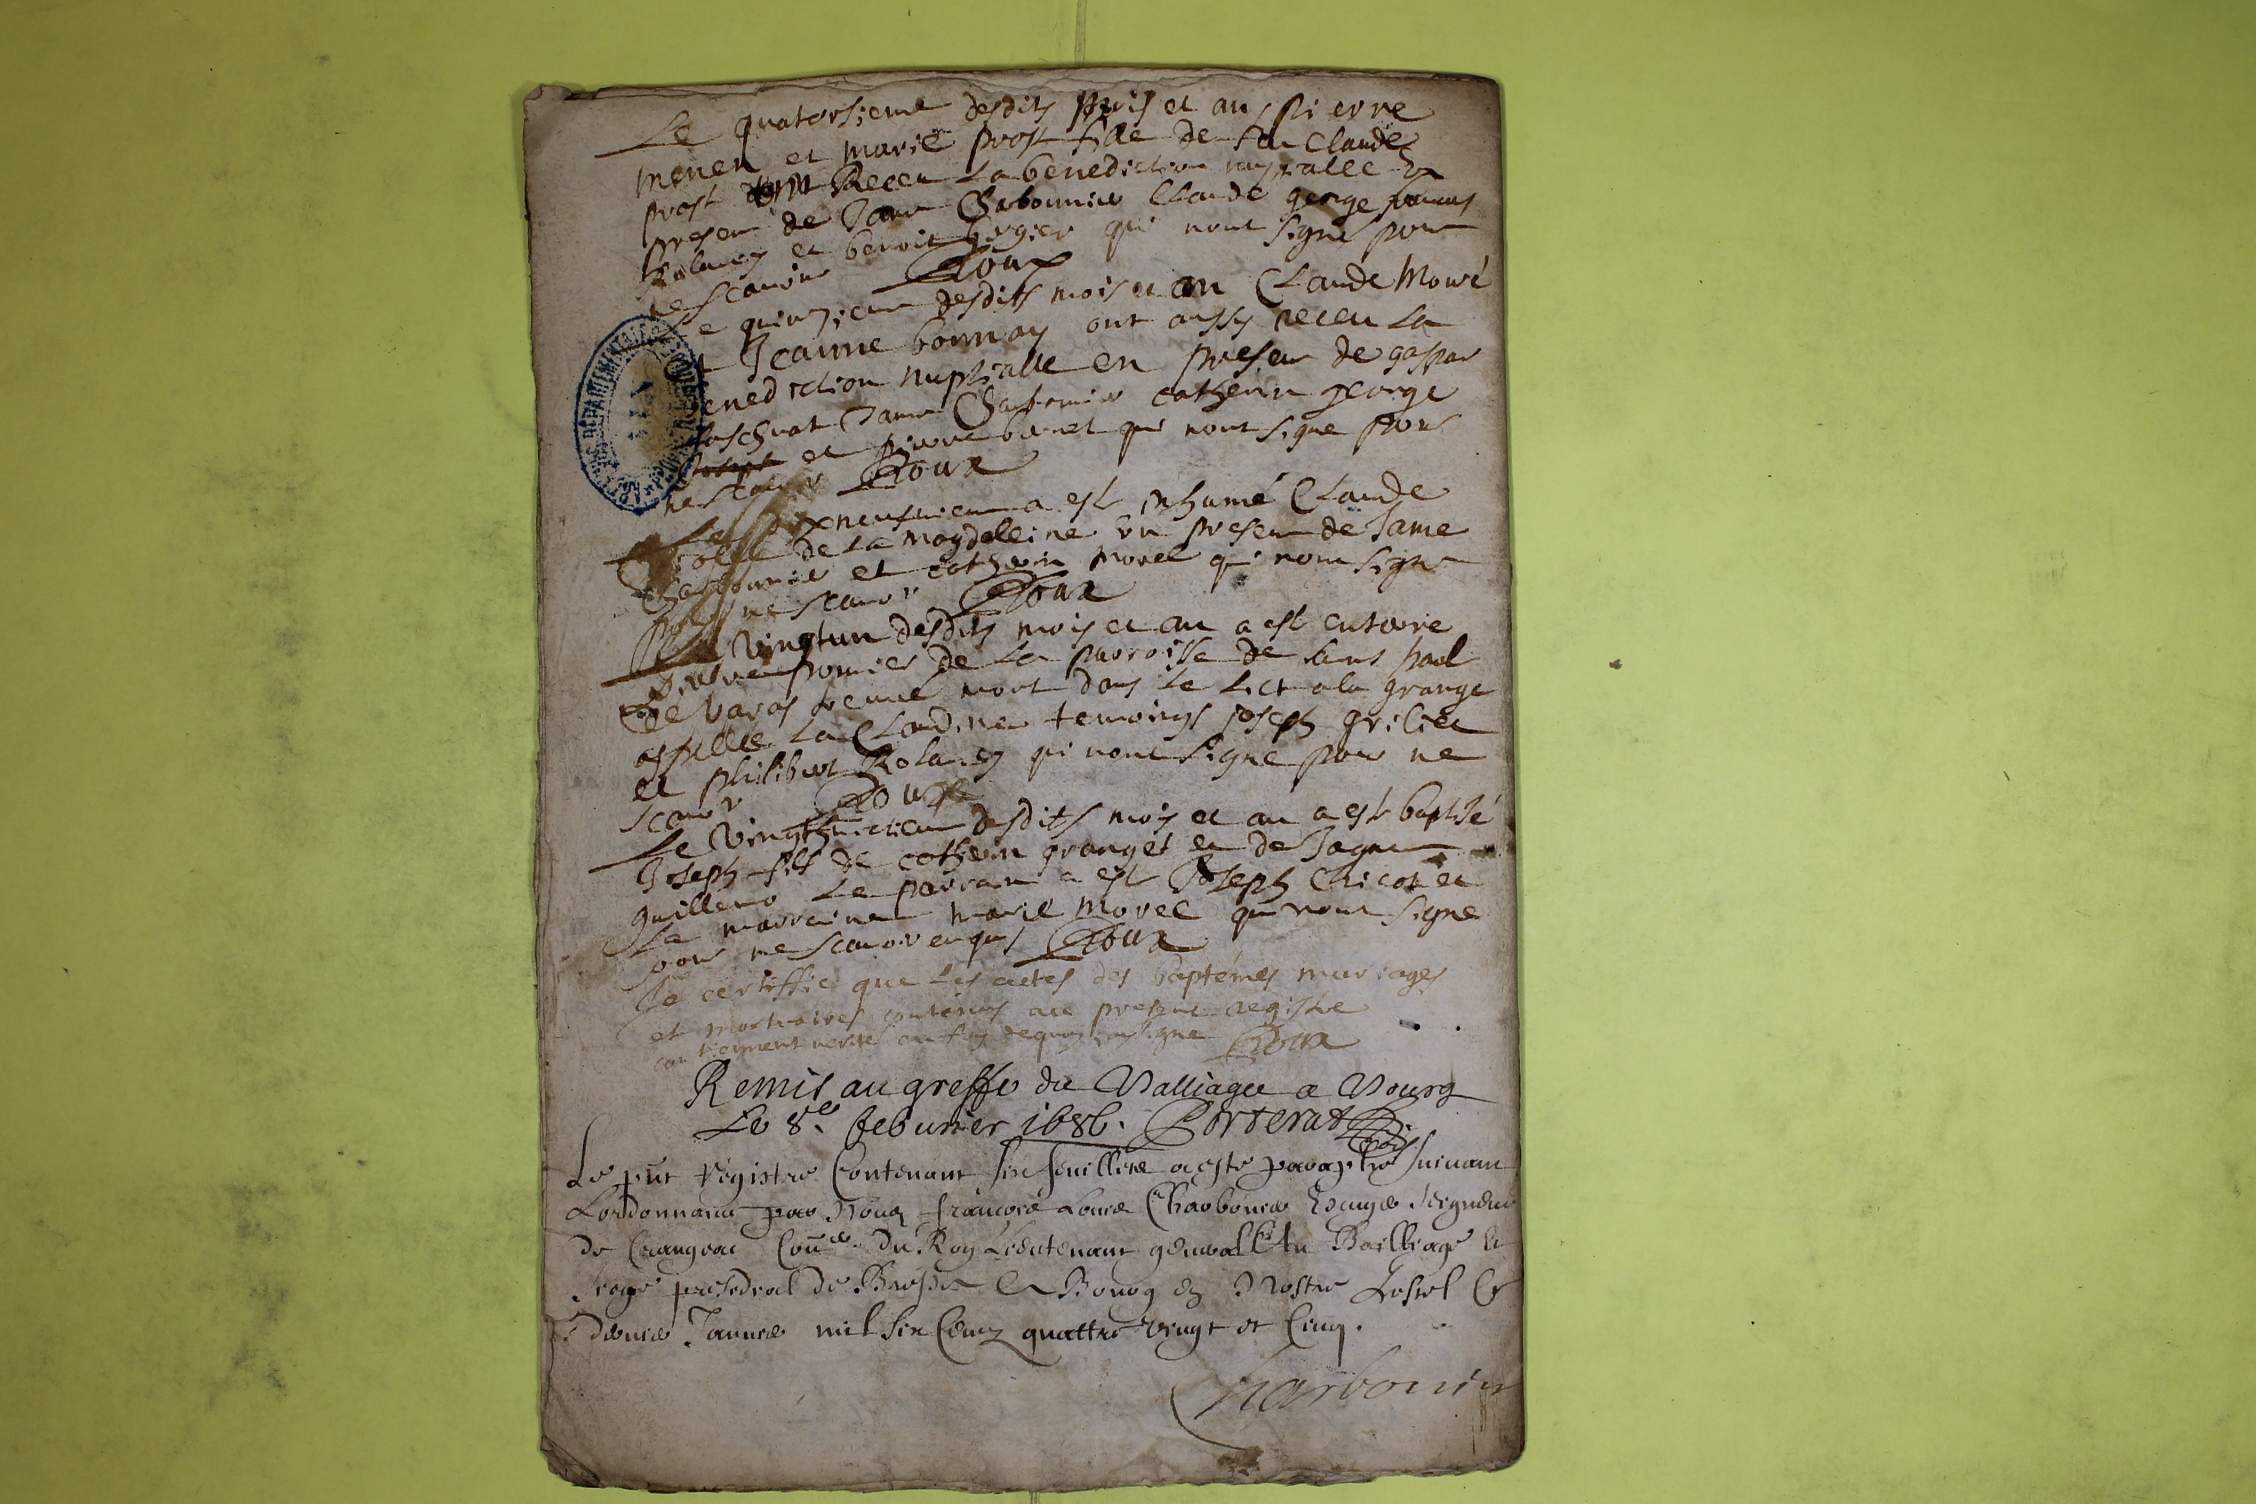 Le quatorsieme desdits mois et an pierre
et marie prost fille de feu Claude
prost ont Receu La benediction nuptialle En
presen de Jame Charbounier Claude george
et benoit qui nont signe pour
ne scavoir Roux
Le quinzieme desdits mois et an Claude Mouré
et Jeanne bonnay ont aussy receu La
benediction nuptialle en presen de gaspar
Jame Charbonnier catherin george
Joseph et pierre qui nont signe pour
ne scavoir Roux
Le dixneufvieme a est inhumé Claude
de La magdelleine en presen de Jame
Charbonnier et catherin morel qui nont signe
pour ne scavoir Roux
Le Vingtun desdits mois et an a est enterre
pomier de La parroisse de saint paul
de varas trouvé mort dans le Lict a la grange
appellee La Claudine temoings Joseph grilier
et philibert Rolandy qi nont signé pour ne
scavoir Roux
Le Vingthuictiem desdits mois et an a est baptisé
Joseph fils de catherin granget et de Jagne
guillemo Le parrain a est Joseph Chicot et
La marraine marie morel qui nont signe
pour ne scavoir enquis Roux
Je certiffie que Les actes des baptemes mariages
et mortuaires contenus au present registre
contiennent verité en foy dequoy Jay signe Roux
Remis au greffe du Balliage a Bourg
Le 8.e febvrier 1686. Porterat
Le pnt registre Contenant six feuilletz a esté paraphé suivant
Lordonnance par Nous françois Louis Charbonier Seigneur
de Crangeac Couer. du Roy Lieutenant general Au Bailliage et
siege presidial de Bresse A Bourg en Nostre hostel Ce
Janvier mil six Cent quattre vingt et Cinq.
Charbonier